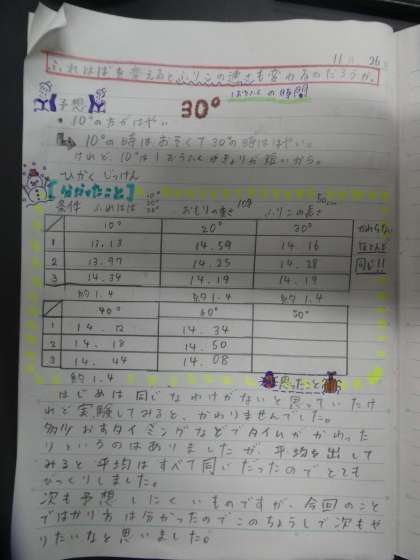 11月 26
ふれはばを変えるとふりこの速さも変わるのだろうか。
おうふくの時間
予想
30°
・10°の方がはやい
10°の時はおそくて30°の時ははやい。
けれど、10°は1おうふくのきょりが短いから。
ひかくじっけん
分かったこと
条件 ふれはば 10° 20° 30° おもりの重さ 10g ふりこの長さ 50cm
10° 20° 30°
1 13.13 14.59 14.16
2 13.97 14.25 14.28
3 14.34 14.19 14.19
約1.4 約1.4 約1.4
かわらない
同じ!!
40° 60° 50°
1 14.12 14.34
2 14.18 14.50
3 14.44 14.08
約1.4
思ったこと
はじめは同じなわけがないと思っていたけ
れど実験してみると、かわりませんでした。
多少おすタイミングなどでタイムがかわった
りというのはありましたが、平均を出して
みると平均はすべて同じだったのでとても
びっくりしました。
次も予想しにくいものですが、今回のこと
ではかり方は分かったのでこのちょうしで次もや
りたいなと思いました。